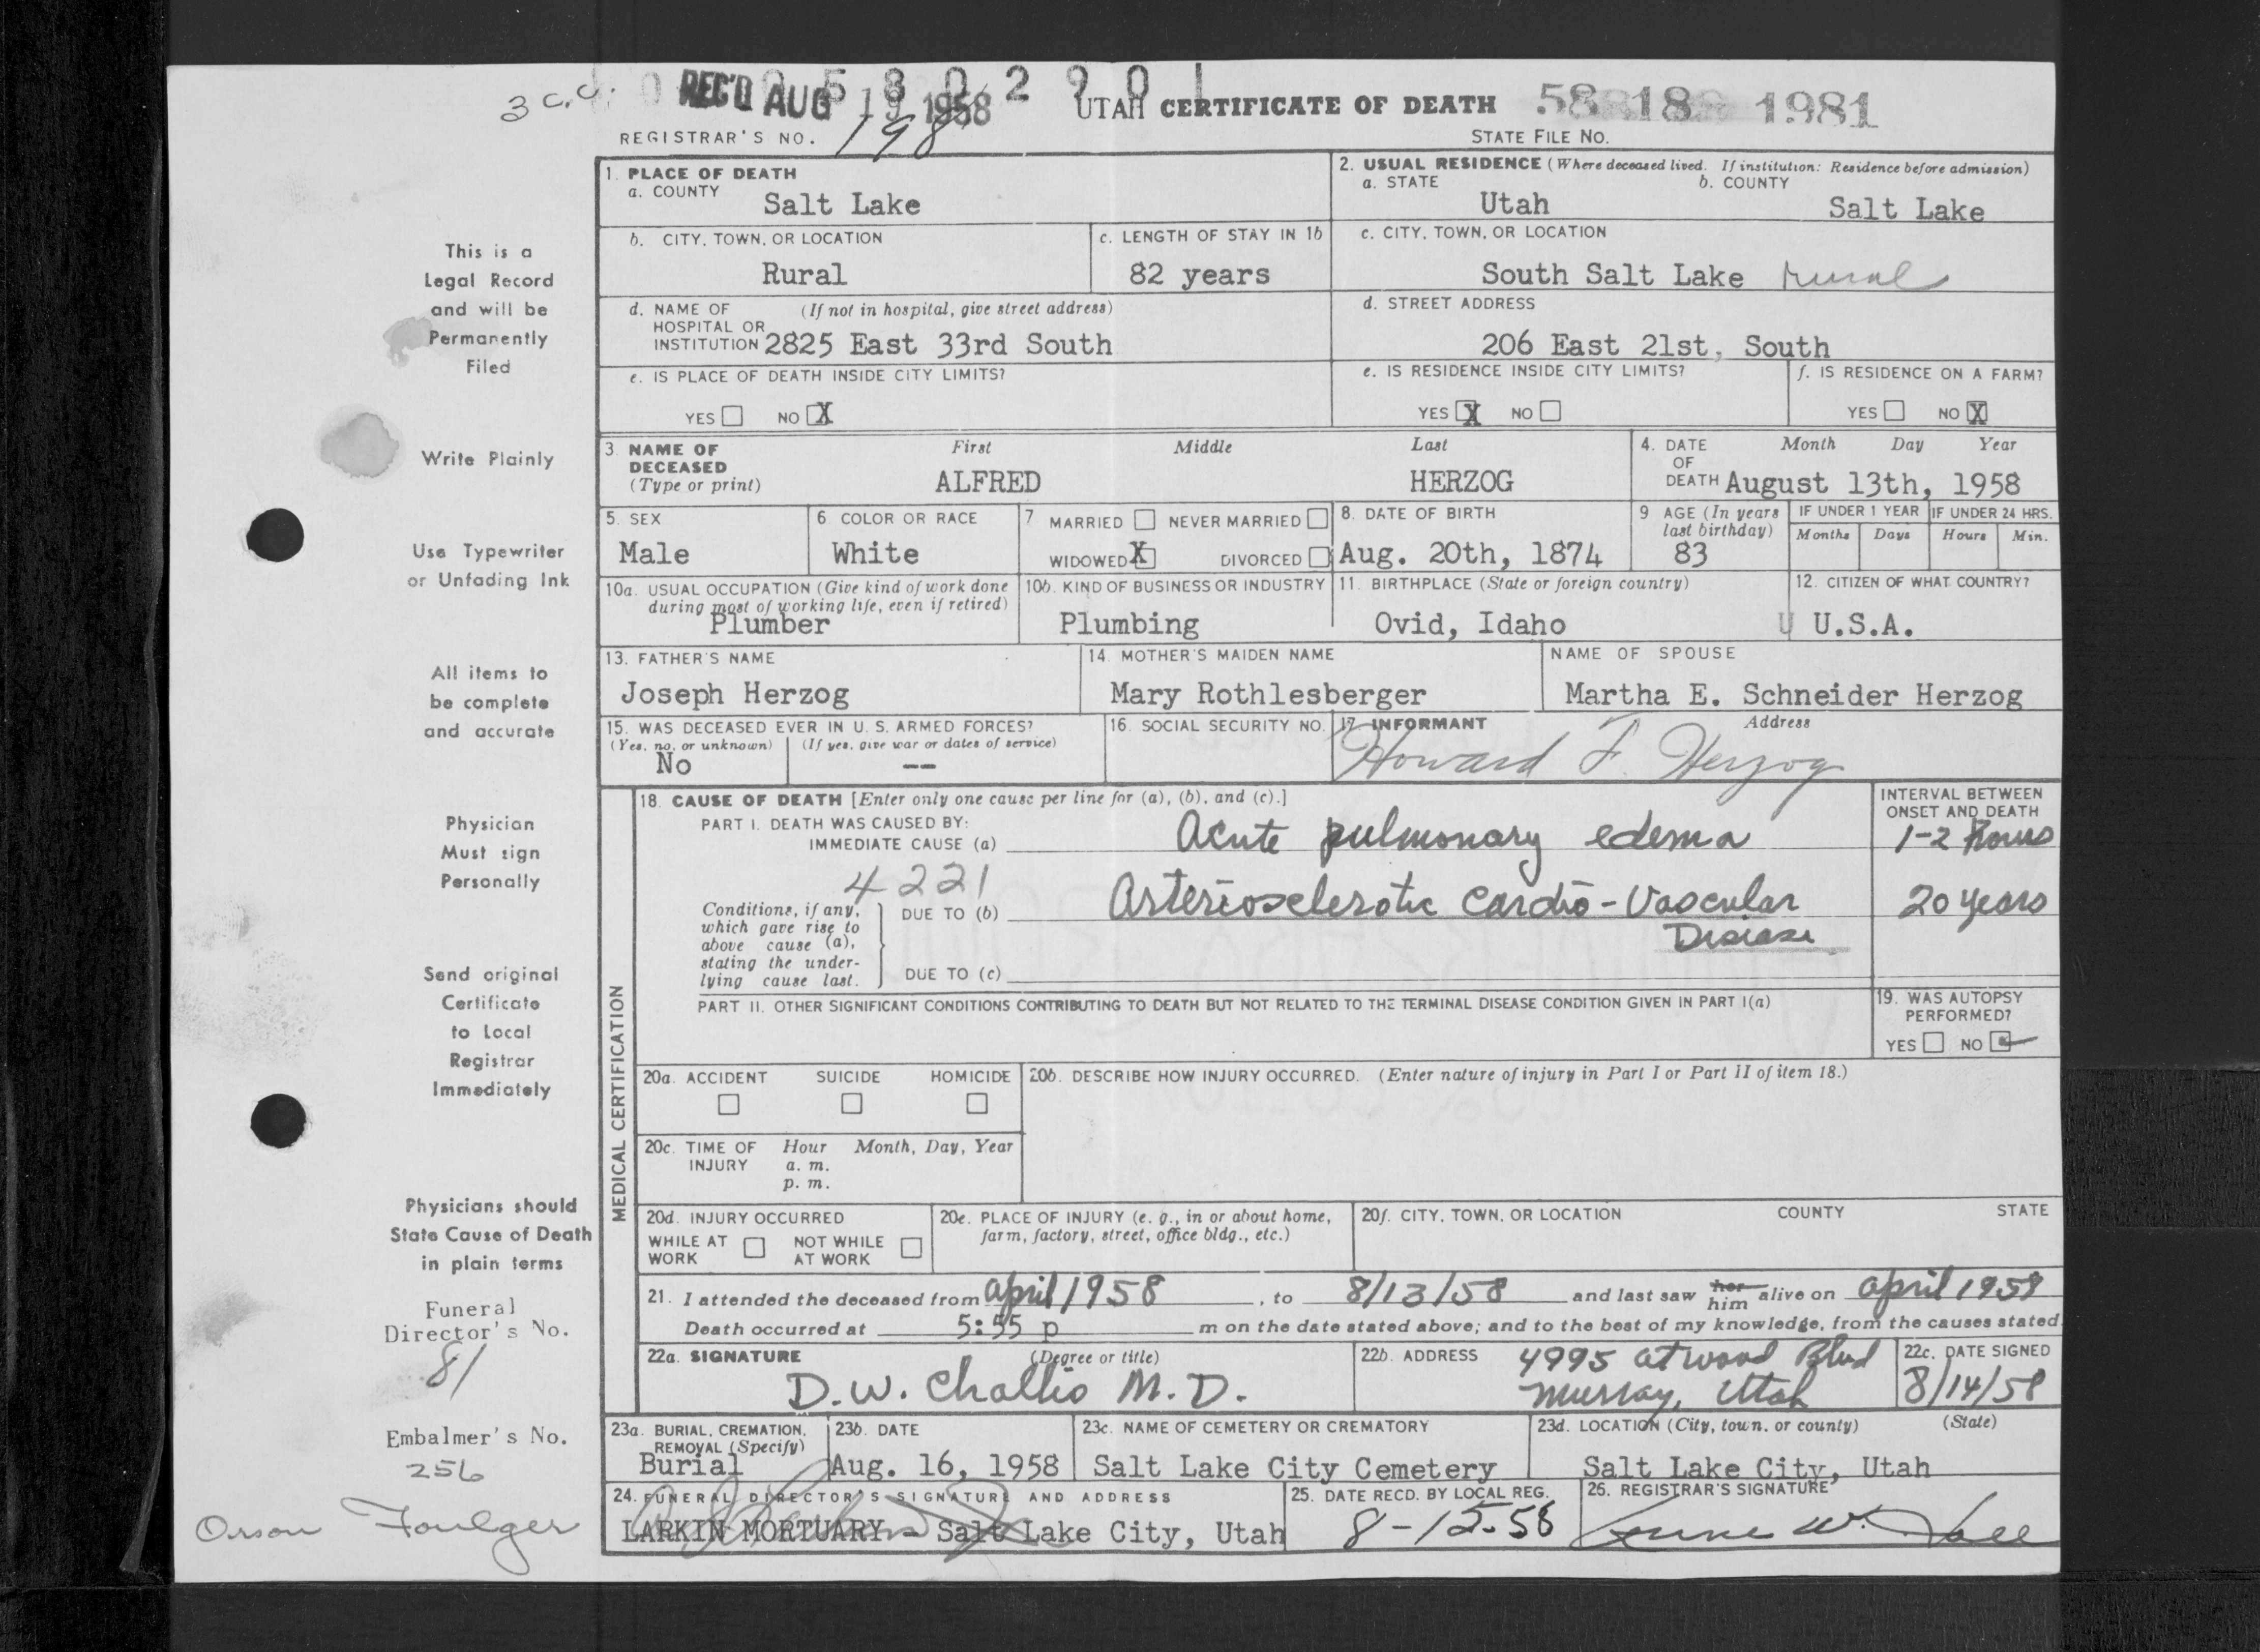 3 c.c.
REC'D AUG 19 1958
0 5 8 0 2 9 0 1
UTAH CERTIFICATE OF DEATH 58 18 1981
REGISTRAR'S NO. 198
STATE FILE NO.
1. PLACE OF DEATH
a. COUNTY
Salt Lake
2. USUAL RESIDENCE (Where deceased lived. If institution: Residence before admission)
a. STATE b. COUNTY
Utah Salt Lake
b. CITY, TOWN, OR LOCATION
Rural
c. LENGTH OF STAY IN 1b
82 years
c. CITY, TOWN, OR LOCATION
South Salt Lake rural
d. NAME OF (If not in hospital, give street address)
HOSPITAL OR
INSTITUTION 2825 East 33rd South
d. STREET ADDRESS
206 East 21st, South
e. IS PLACE OF DEATH INSIDE CITY LIMITS?
YES NO X
e. IS RESIDENCE INSIDE CITY LIMITS?
YES X NO
f. IS RESIDENCE ON A FARM?
YES NO X
3. NAME OF First Middle Last
DECEASED
(Type or print) ALFRED HERZOG
4. DATE Month Day Year
OF
DEATH August 13th, 1958
5. SEX
Male
6. COLOR OR RACE
White
7 MARRIED NEVER MARRIED
WIDOWED X DIVORCED
8. DATE OF BIRTH
Aug. 20th, 1874
9 AGE (In years
last birthday)
83
IF UNDER 1 YEAR IF UNDER 24 HRS.
Months Days Hours Min.
10a. USUAL OCCUPATION (Give kind of work done
during most of working life, even if retired)
Plumber
10b. KIND OF BUSINESS OR INDUSTRY
Plumbing
11. BIRTHPLACE (State or foreign country)
Ovid, Idaho
12. CITIZEN OF WHAT COUNTRY?
U U.S.A.
13. FATHER'S NAME
Joseph Herzog
14. MOTHER'S MAIDEN NAME
Mary Rothlesberger
NAME OF SPOUSE
Martha E. Schneider Herzog
15. WAS DECEASED EVER IN U. S. ARMED FORCES?
(Yes, no, or unknown) (If yes, give war or dates of service)
No --
16. SOCIAL SECURITY NO.
17. INFORMANT Address
Howard F. Herzog
MEDICAL CERTIFICATION
18. CAUSE OF DEATH [Enter only one cause per line for (a), (b), and (c).]
INTERVAL BETWEEN
ONSET AND DEATH
PART I. DEATH WAS CAUSED BY:
IMMEDIATE CAUSE (a) Acute pulmonary edema 1-2 hours
4221
Conditions, if any,
which gave rise to
above cause (a),
stating the under-
lying cause last.
DUE TO (b) Arteriosclerotic Cardio-Vascular 20 years
Disease
DUE TO (c)
PART II. OTHER SIGNIFICANT CONDITIONS CONTRIBUTING TO DEATH BUT NOT RELATED TO THE TERMINAL DISEASE CONDITION GIVEN IN PART I(a)
19. WAS AUTOPSY
PERFORMED?
YES NO
20a. ACCIDENT SUICIDE HOMICIDE
20b. DESCRIBE HOW INJURY OCCURRED. (Enter nature of injury in Part I or Part II of item 18.)
20c. TIME OF Hour Month, Day, Year
INJURY a. m.
p. m.
20d. INJURY OCCURRED
WHILE AT NOT WHILE
WORK AT WORK
20e. PLACE OF INJURY (e. g., in or about home,
farm, factory, street, office bldg., etc.)
20f. CITY, TOWN, OR LOCATION COUNTY STATE
21. I attended the deceased from April 1958, to 8/13/58 and last saw her him alive on April 1958
Death occurred at 5:55 p m on the date stated above; and to the best of my knowledge, from the causes stated.
22a. SIGNATURE (Degree or title)
D.W. Challis M.D.
22b. ADDRESS 4995 Atwood Blvd
Murray, Utah
22c. DATE SIGNED
8/14/58
23a. BURIAL, CREMATION,
REMOVAL (Specify)
Burial
23b. DATE
Aug. 16, 1958
23c. NAME OF CEMETERY OR CREMATORY
Salt Lake City Cemetery
23d. LOCATION (City, town, or county) (State)
Salt Lake City, Utah
24. FUNERAL DIRECTOR'S SIGNATURE AND ADDRESS
LARKIN MORTUARY - Salt Lake City, Utah
25. DATE RECD. BY LOCAL REG.
8-15-58
26. REGISTRAR'S SIGNATURE
This is a
Legal Record
and will be
Permanently
Filed
Write Plainly
Use Typewriter
or Unfading Ink
All items to
be complete
and accurate
Physician
Must sign
Personally
Send original
Certificate
to Local
Registrar
Immediately
Physicians should
State Cause of Death
in plain terms
Funeral
Director's No.
81
Embalmer's No.
256
Orson Foulger